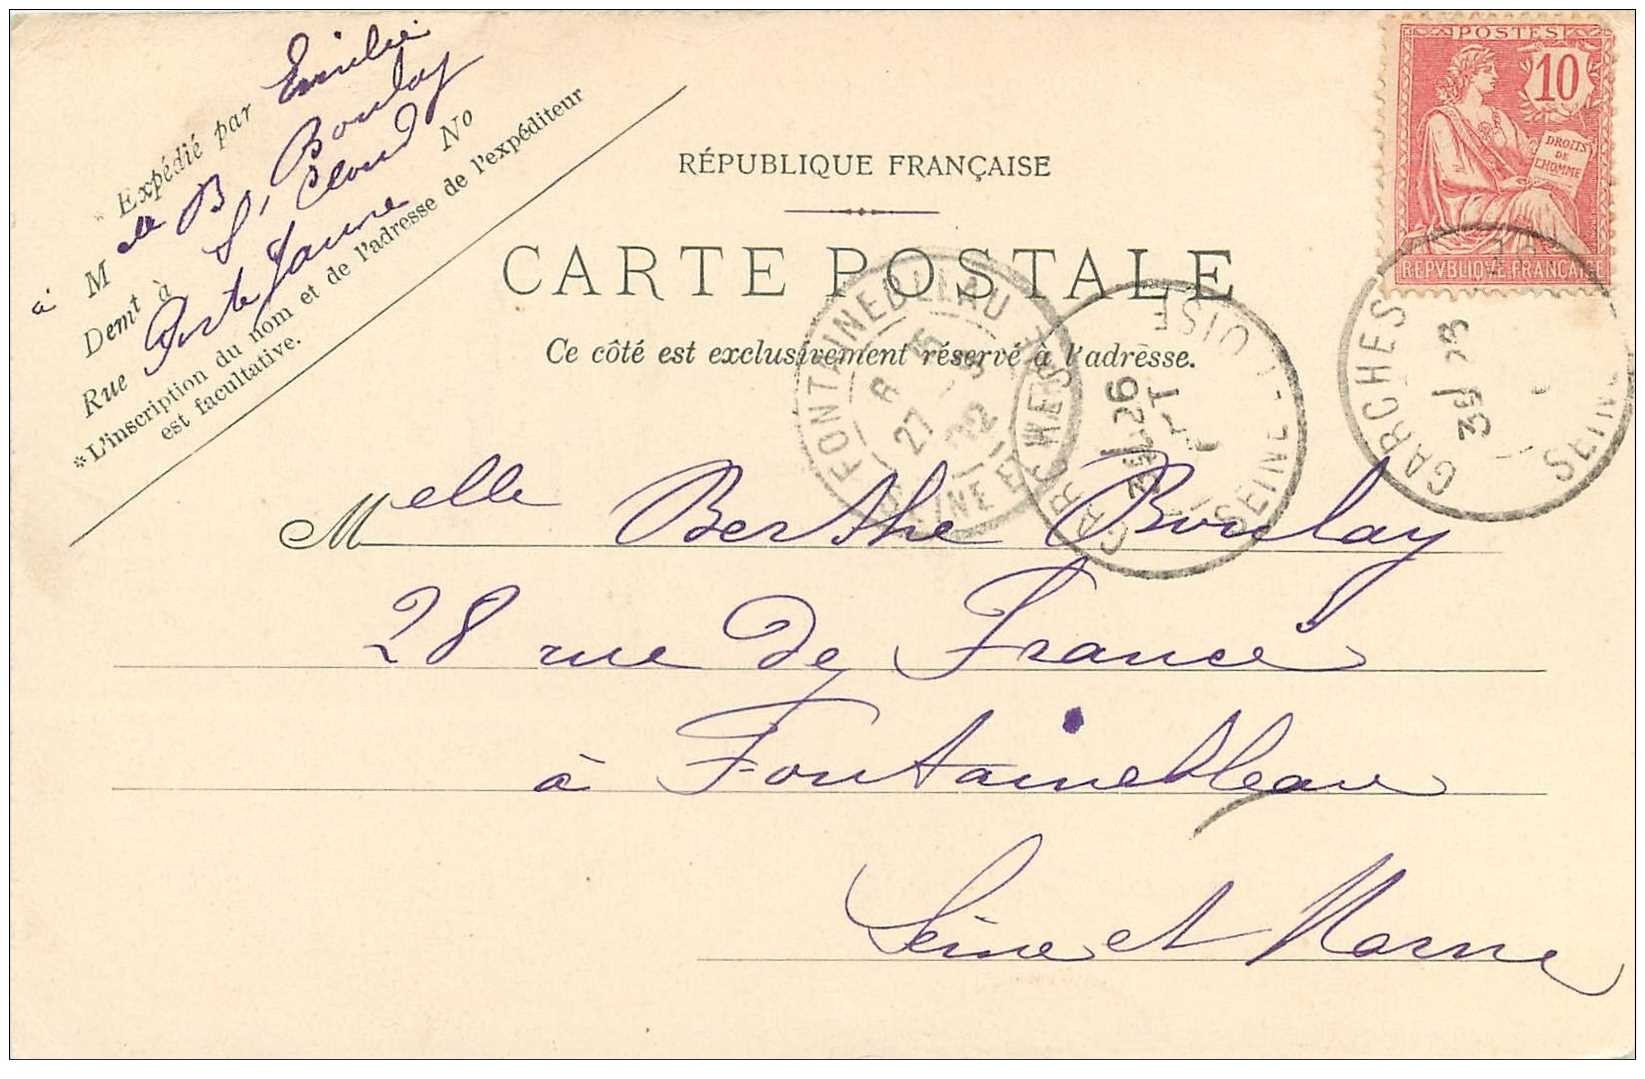 * Expédié par Emilie
à M elle B. Boulay
Demt à St Cloud
Rue Porte Jaune No
*L'inscription du nom et de l'adresse de l'expéditeur
est facultative.
RÉPUBLIQUE FRANÇAISE
CARTE POSTALE
Ce côté est exclusivement réservé à l'adresse.
POSTES
10
DROITS
DE
L'HOMME
REPVBLIQVE FRANÇAISE
FONTAINEBLEAU
27 -5
02
SEINE ET
GARCHES
SEINE-ET-OISE
GARCHES
SEINE
Melle Berthe Boulay
28 rue de France
à Fontainebleau
Seine et Marne